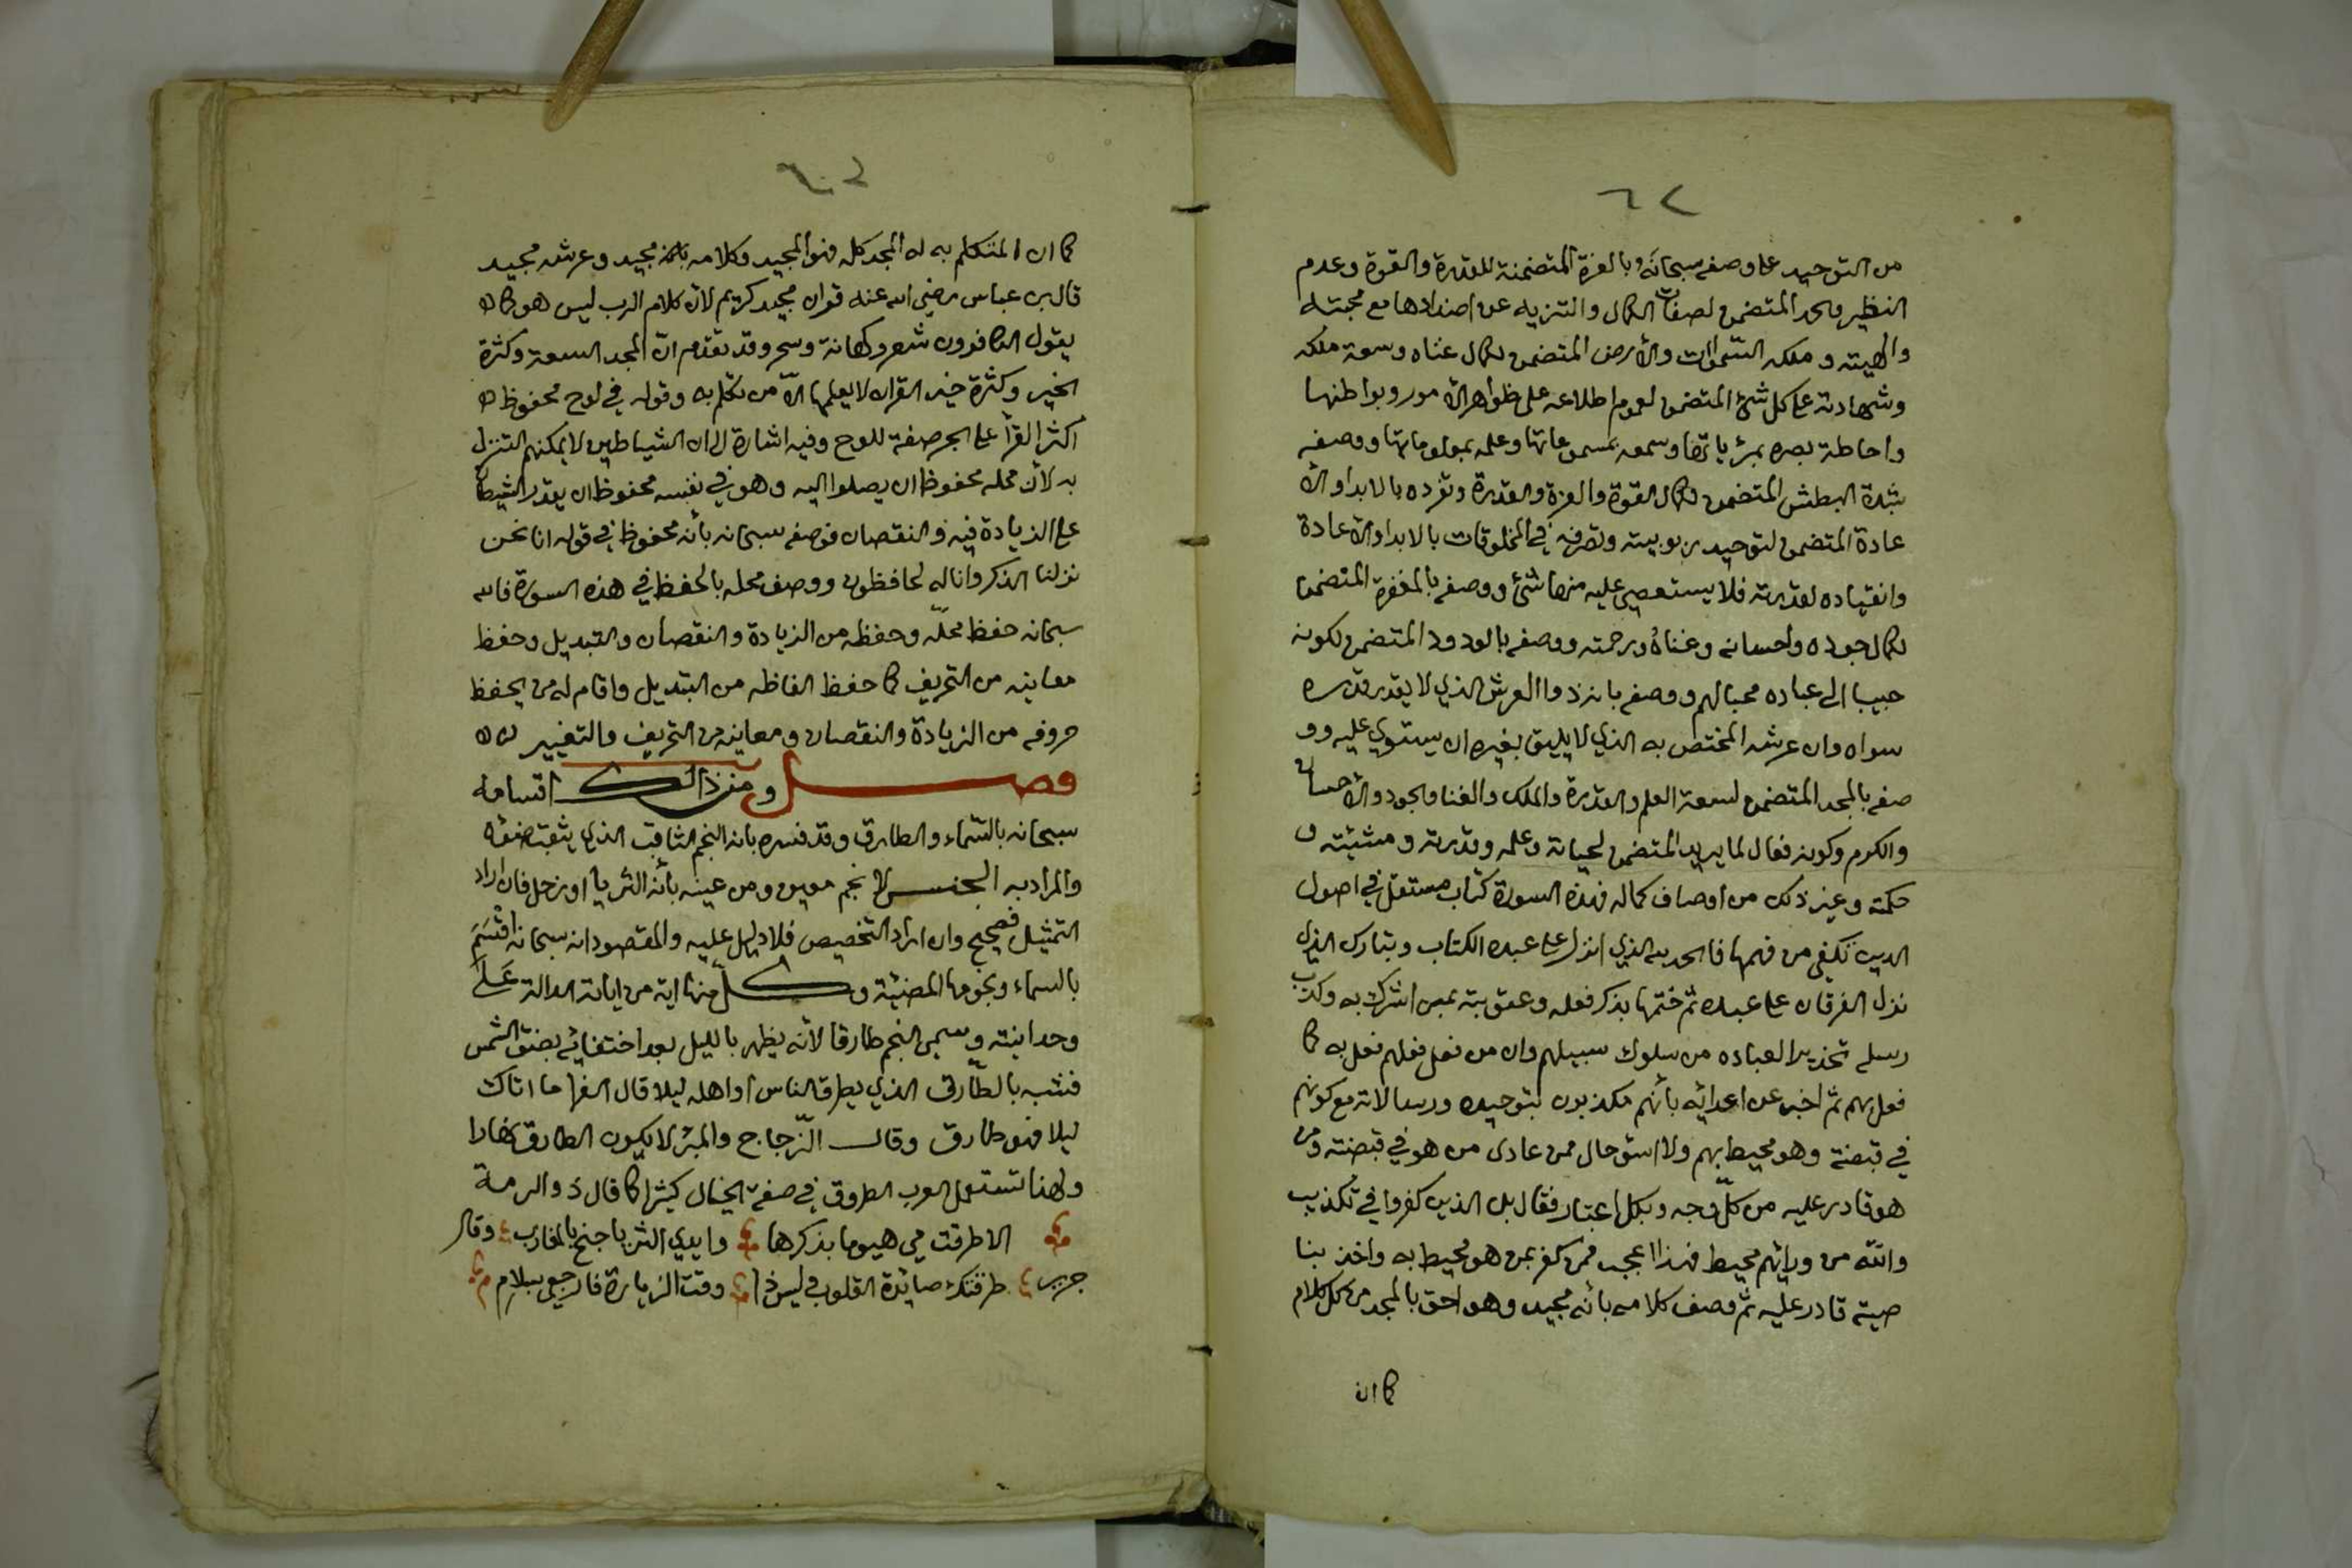 ٦٢
من التوحيد على وصفه سبحانه وبالعزة المتضمنة للقدرة والقوة وعدم
النظير والحمد المتضمن لصفات الكمال والتنزيه عن اضدادها مع محبته
والهيته وملكه السموات والأرض المتضمن لكمال غناه وسعة ملكه
وشهادته على كل شئ المتضمن لعموم اطلاعه على ظواهر الأمور وبواطنها
واحاطة بصره بمرئياتها وسمعه بمسموعاتها وعلمه بمعلوماتها ووصفه
بشدة البطش المتضمن لكمال القوة والعزة والقدرة وتفرده بالابدا والأ
عادة المتضمن لتوحيد ربوبيته وتصرفه في المخلوقات بالابدا والأعادة
وانقياده لقدرته فلا يستعصي عليه منها شئ ووصفه بالمغفرة المتضمن
لكمال جوده واحسانه وغناه ورحمته ووصفه بالودود المتضمن لكونه
حبيبا الى عباده محبا لهم ووصفه بانه ذوا العرش الذي لا يقدر قدره
سواه وان عرشه المختص به الذي لا يليق بغيره ان يستوي عليه وو
صفه بالمجد المتضمن لسعة العلم والقدرة والملك والغنا والجود والأحسان
والكرم وكونه فعال لما يريد المتضمن لحياته وعلمه وقدرته ومشيئته و
حكمته وغير ذلك من اوصاف كماله فهذه السورة كتاب مستقل في اصول
الدين تكفي من فهمها فالحمد لله الذي انزل على عبده الكتاب وتبارك الذي
نزل الفرقان على عبده ثم ختمها بذكر فعله وعقوبته بمن اشرك به وكذب
رسله تحذيرا لعباده من سلوك سبيلهم وان من فعل فعلهم فعل به كما
فعل بهم ثم اخبر عن اعدائه بأنهم مكذبون بتوحيده ورسالاته مع كونهم
في قبضته وهو محيط بهم ولا اسؤ حال ممن عادى من هو في قبضته ومن
هو قادر عليه من كل وجه وبكل اعتبار فقال بل الذين كفروا في تكذيب
والله من ورائهم محيط فهذا اعجب ممن كفر بمن هو محيط به واخذ بنا
صيته قادر عليه ثم وصف كلامه بأنه مجيد وهو احق بالمجد من كل كلام
كما ان
كما ان المتكلم به له المجد كله فهو المجيد وكلامه مجيد وعرشه مجيد
قال بن عباس رضي الله عنه قران مجيد كريم لأن كلام الرب ليس هو كما
يقول الكافرون شعر وكهانة وسحر وقد تقدم ان المجد السعة وكثرة
الخير وكثرة خير القران لا يعلمها الا من تكلم به وقوله في لوح محفوظ
اكثر القرأ على الجر صفة للوح وفيه اشارة الى ان الشياطين لا يمكنهم التنزل
به لأن محله محفوظ ان يصلوا اليه وهو في نفسه محفوظ ان يقدر الشيطان
على الزيادة فيه والنقصان فوصفه سبحانه بأنه محفوظ في قوله انا نحن
نزلنا الذكر وانا له لحافظون ووصف محله بالحفظ في هذه السورة فالله
سبحانه حفظ محله وحفظه من الزيادة والنقصان والتبديل وحفظ
معانيه من التحريف كما حفظ الفاظه من التبديل واقام له من يحفظ
حروفه من الزيادة والنقصان ومعانيه من التحريف والتغيير
فصل ومن ذالك اقسامه
سبحانه بالسماء والطارق وقد فسره بانه النجم الثاقب الذي يثقب ضوئه
والمراد به الجنس لا نجم معين ومن عينه بأنه الثريا او زحل فان اراد
التمثيل فصحيح وان اراد التخصيص فلا دليل عليه والمقصود انه سبحانه اقسم
بالسماء ونجومها المضيئة وكل منها اية من اياته الدالة على
وحدانيته وسمى النجم طارقا لأنه يظهر بالليل بعد اختفائه بضؤ الشمس
فشبه بالطارق الذي يطرق الناس او اهله ليلا قال الفرا ما اتاك
ليلا فهو طارق وقال الزجاج والمبرد لا يكون الطارق نهارا
ولهذا تستعمل العرب الطروق في صفة الخيال كثيرا كما قال ذو الرمة
الا طرقت مي هيوما بذكرها وايدي الثريا جنح بالمغارب وقال
جرير طرقتك صائدة القلوب وليس ذا وقت الزيارة فارجعي بسلام